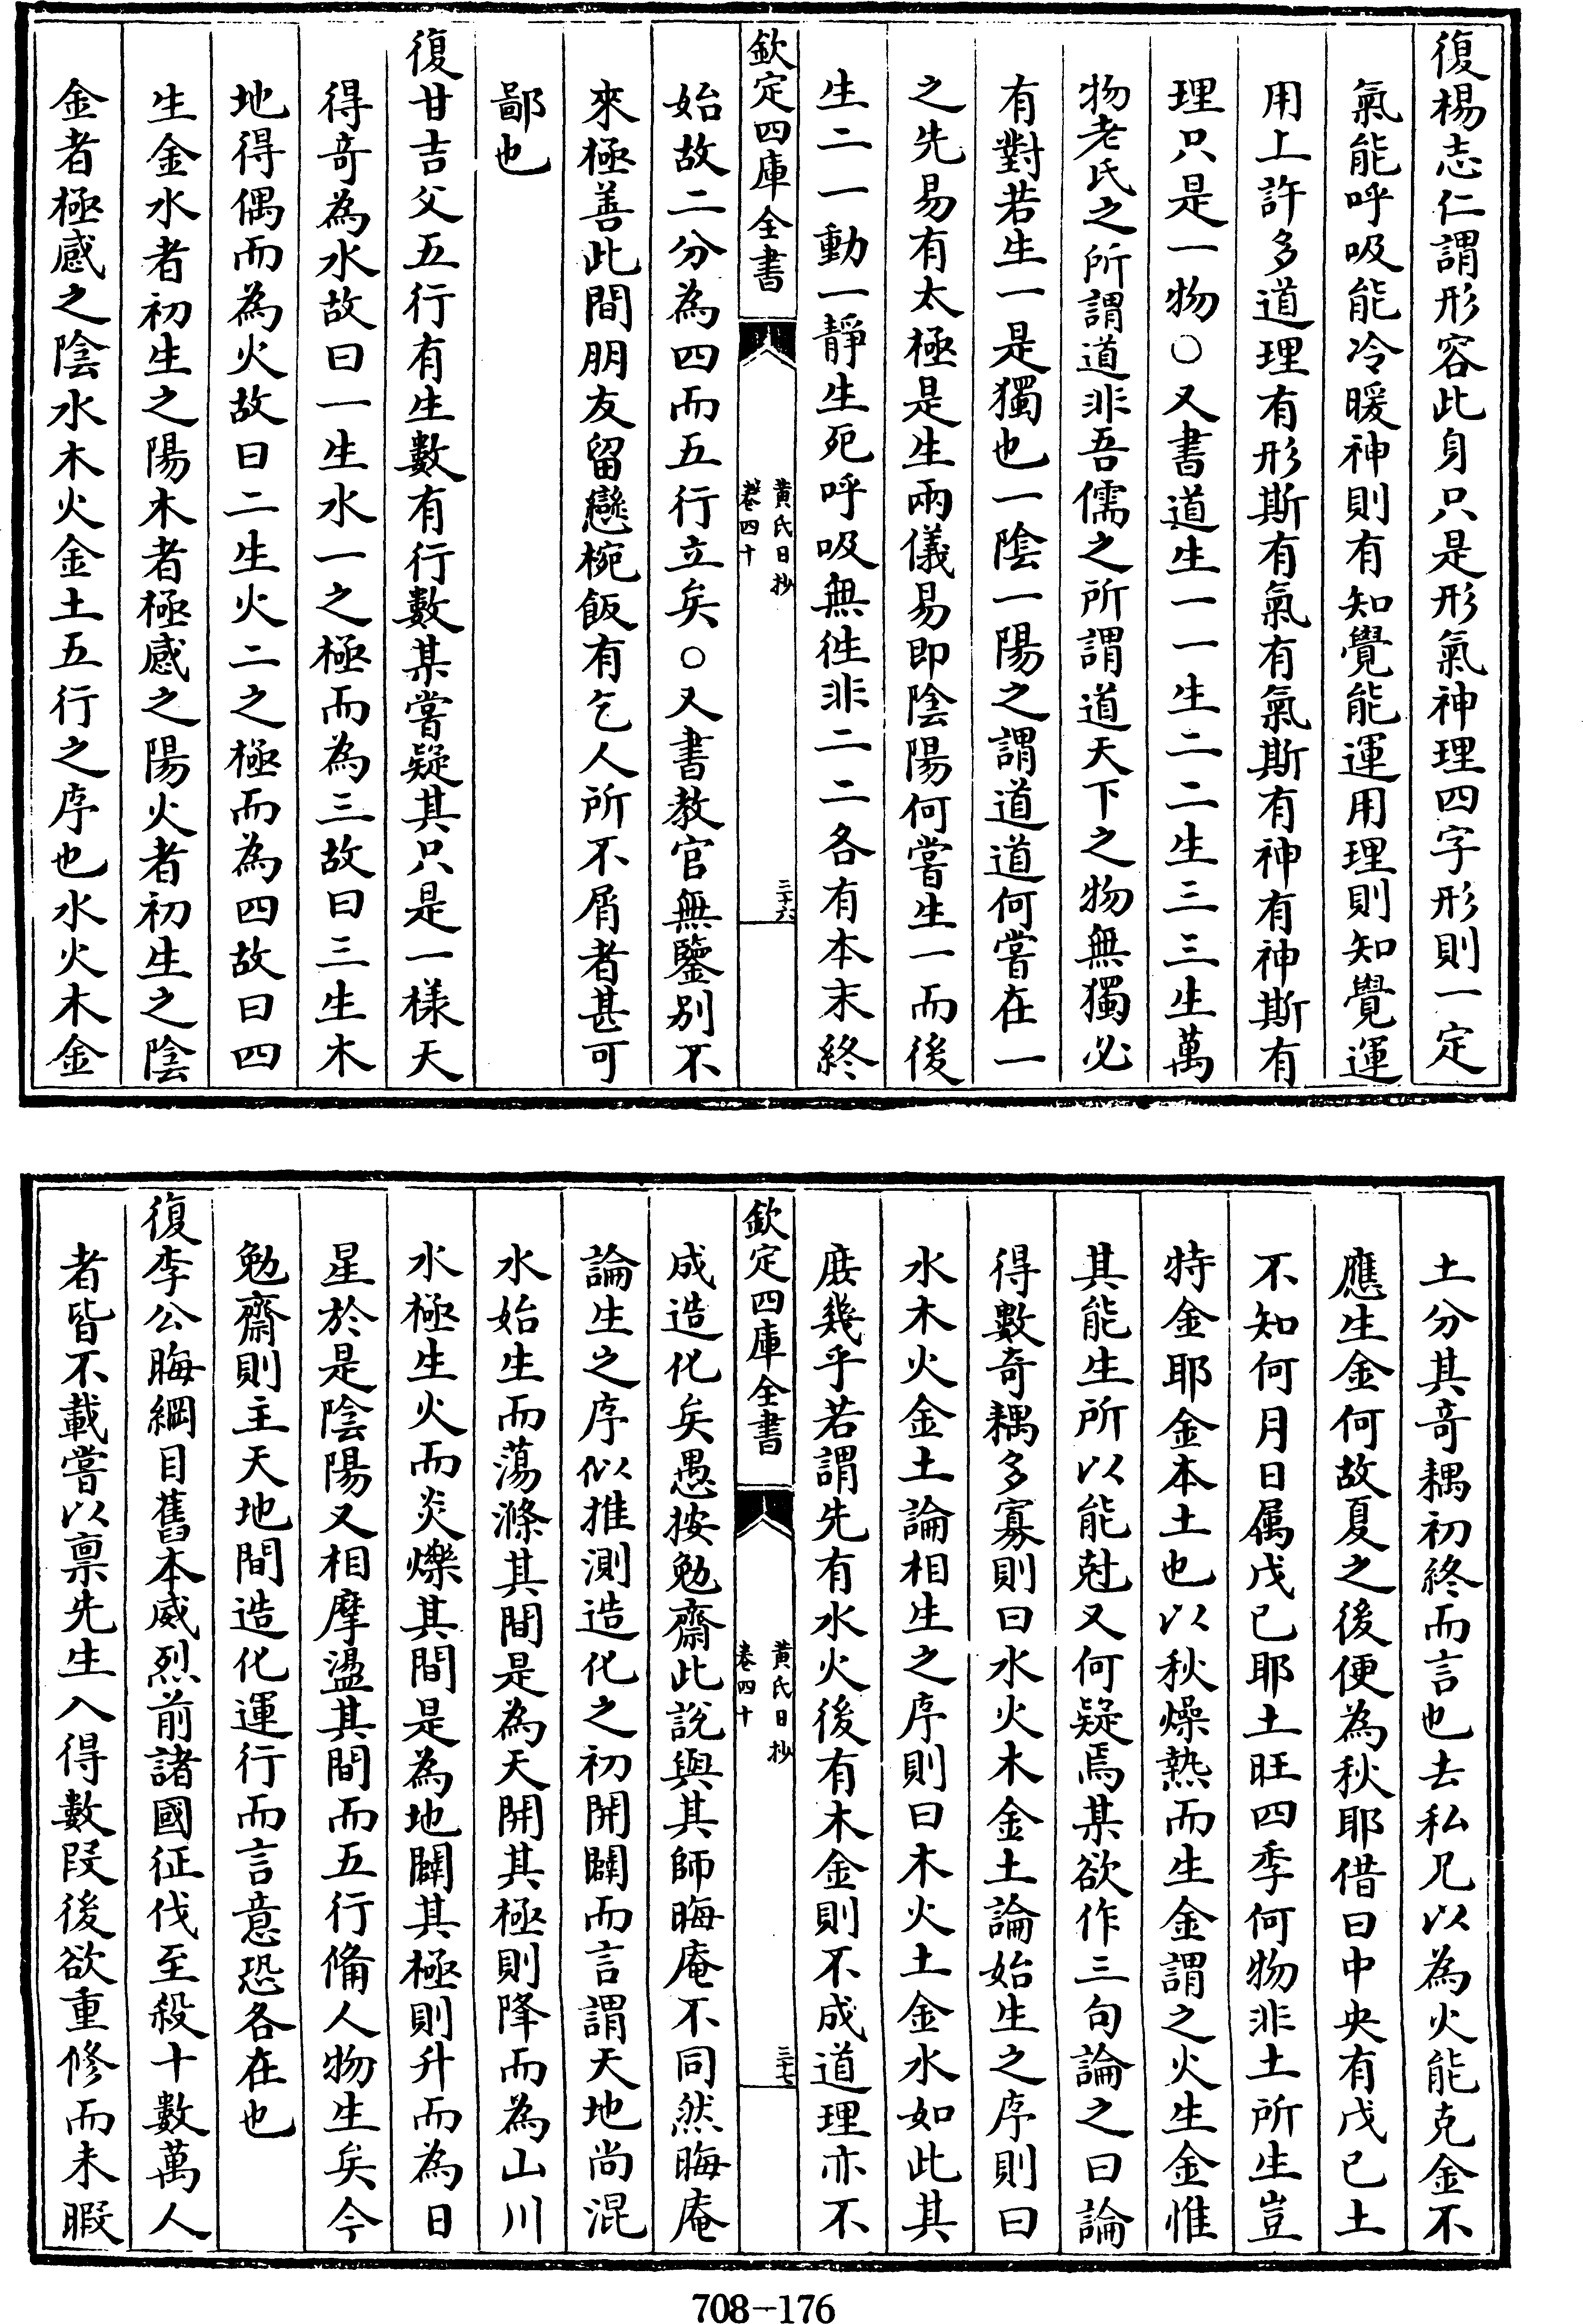 復楊志仁謂形容此身只是形氣神理四字形則一定
氣能呼吸能冷暖神則有知覺能運用理則知覺運
用上許多道理有形斯有氣有氣斯有神有神斯有
理只是一物○又書道生一一生二二生三三生萬
物老氏之所謂道非吾儒之所謂道天下之物無獨必
有對若生一是獨也一陰一陽之謂道道何嘗在一
之先易有太極是生兩儀易即陰陽何嘗生一而後
生二一動一靜生死呼吸無徃非二二各有本末終
欽定四庫全書
黃氏日抄
卷四十
三十六
始故二分為四而五行立矣○又書教官無鑒别不
來極善此間朋友留戀椀飯有乞人所不屑者甚可
鄙也
復甘吉父五行有生數有行數某嘗疑其只是一樣天
得奇為水故曰一生水一之極而為三故曰三生木
地得偶而為火故曰二生火二之極而為四故曰四
生金水者初生之陽木者極感之陽火者初生之陰
金者極感之陰水木火金土五行之序也水火木金
土分其奇耦初終而言也去私兄以為火能克金不
應生金何故夏之後便為秋耶借曰中央有戊已土
不知何月日属戊已耶土旺四季何物非土所生豈
特金耶金本土也以秋燥熱而生金謂之火生金惟
其能生所以能尅又何疑焉某欲作三句論之曰論
得數奇耦多寡則曰水火木金土論始生之序則曰
水木火金土論相生之序則曰木火土金水如此其
庻幾乎若謂先有水火後有木金則不成道理亦不
欽定四庫全書
黃氏日抄
卷四十
三十七
成造化矣愚按勉齋此說與其師晦庵不同然晦庵
論生之序似推測造化之初開闢而言謂天地尚混
水始生而蕩滌其間是為天開其極則降而為山川
水極生火而炎爍其間是為地闢其極則升而為日
星於是陰陽又相摩盪其間而五行備人物生矣今
勉齋則主天地間造化運行而言意恐各在也
復李公晦綱目舊本威烈前諸國征伐至殺十數萬人
者皆不載嘗以禀先生入得數段後欲重修而未暇
708-176